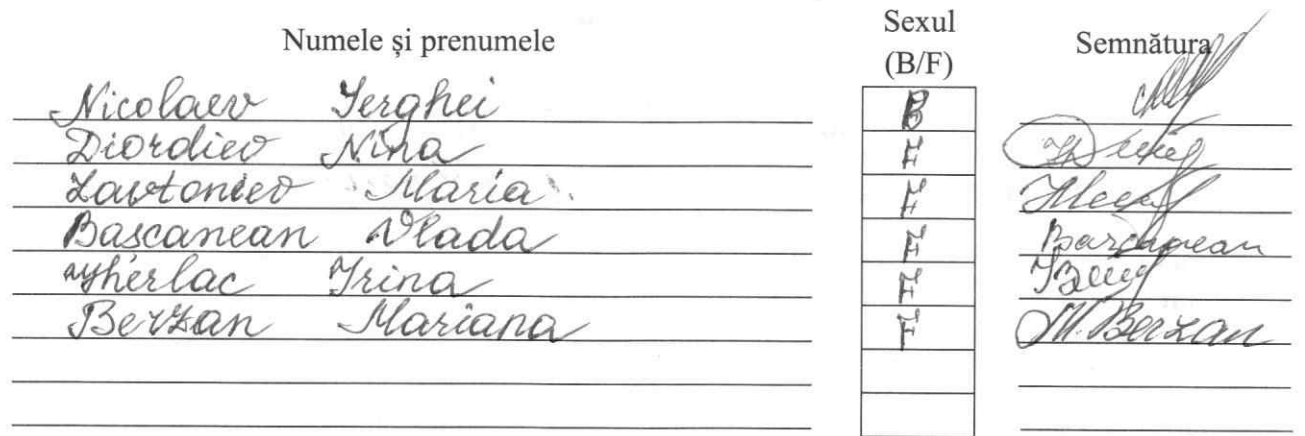 Numele și prenumele Sexul (B/F) Semnătura
Nicolaev Serghei B
Diordiev Nina F
Zavtoniev Maria F
Bascanean Vlada F Bascanean
Gherlac Irina F
Berzan Mariana F M. Berzan